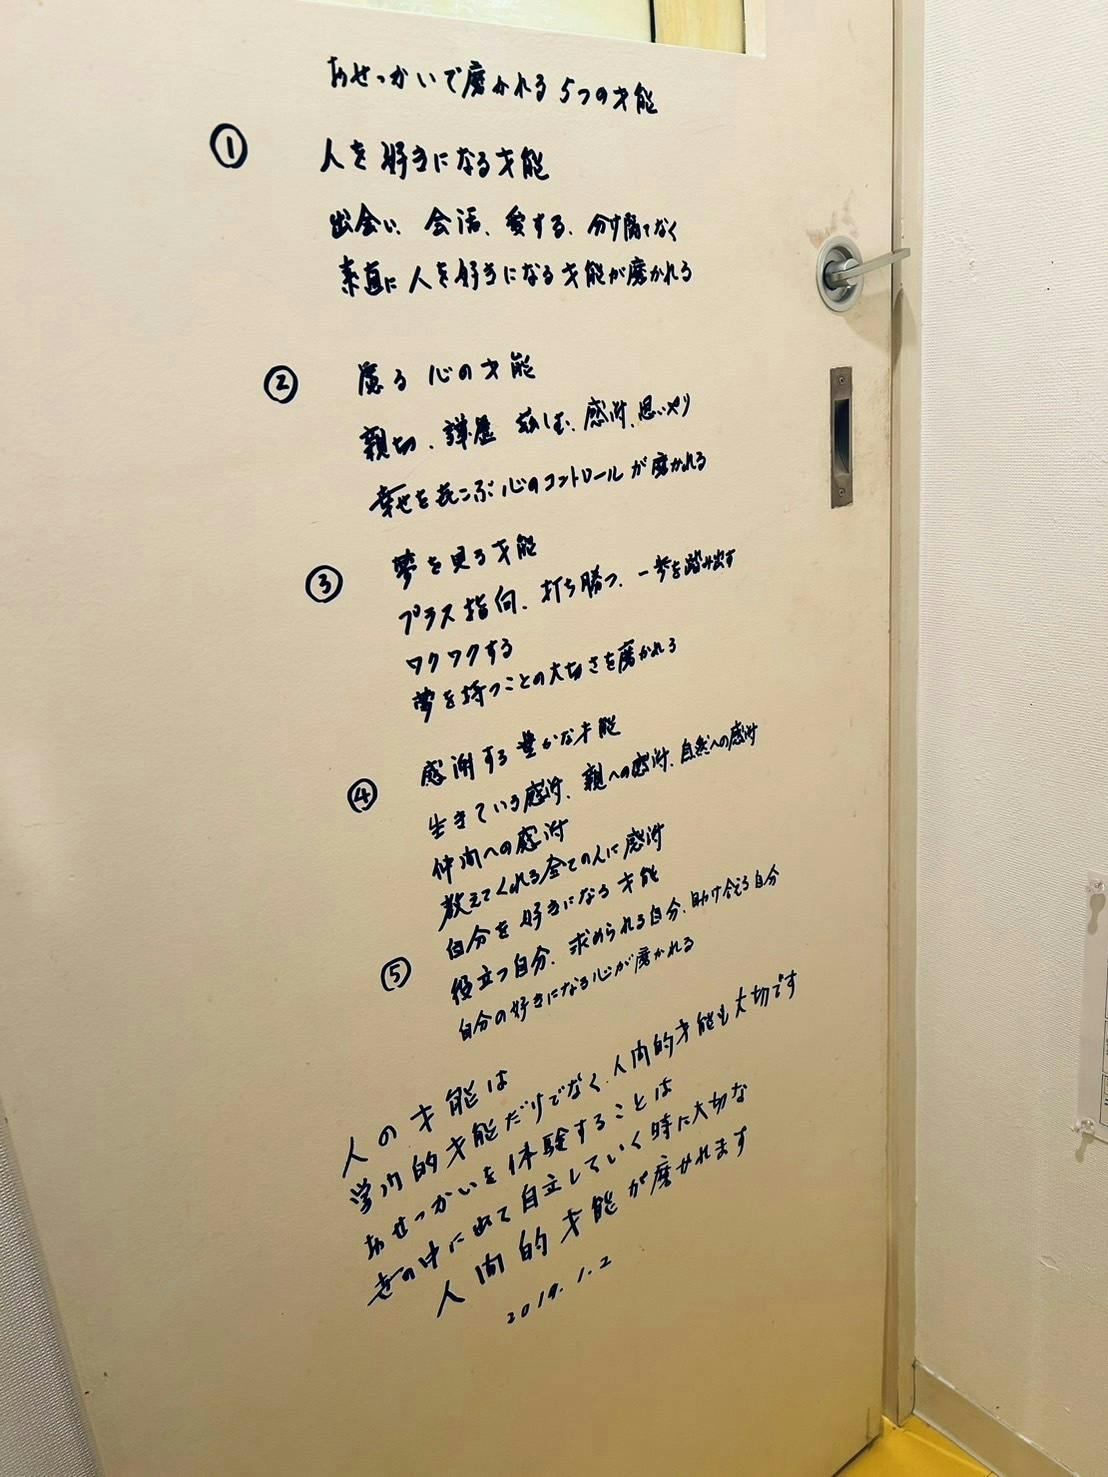 おせっかいで磨かれる5つの才能
① 人を好きになる才能
出会い、会話、愛する、分け隔てなく
素直に人を好きになる才能が磨かれる
② 慮る心の才能
親切、謙虚、慈しむ、感謝、思いやり
幸せをよろこぶ心のコントロールが磨かれる
③ 夢を見る才能
プラス指向、打ち勝つ、一歩を踏み出す
ワクワクする
夢を持つことの大切さを磨かれる
④ 感謝する豊かな才能
生きている感謝、親への感謝、自然への感謝
仲間への感謝
教えてくれる全ての人に感謝
⑤ 自分を好きになる才能
役立つ自分、求められる自分、助け合える自分
自分の好きになる心が磨かれる
人の才能は
学力的才能だけでなく、人間的才能も大切です
おせっかいを体験することは
世の中に出て自立していく時に大切な
人間的才能が磨かれます
2019.1.2